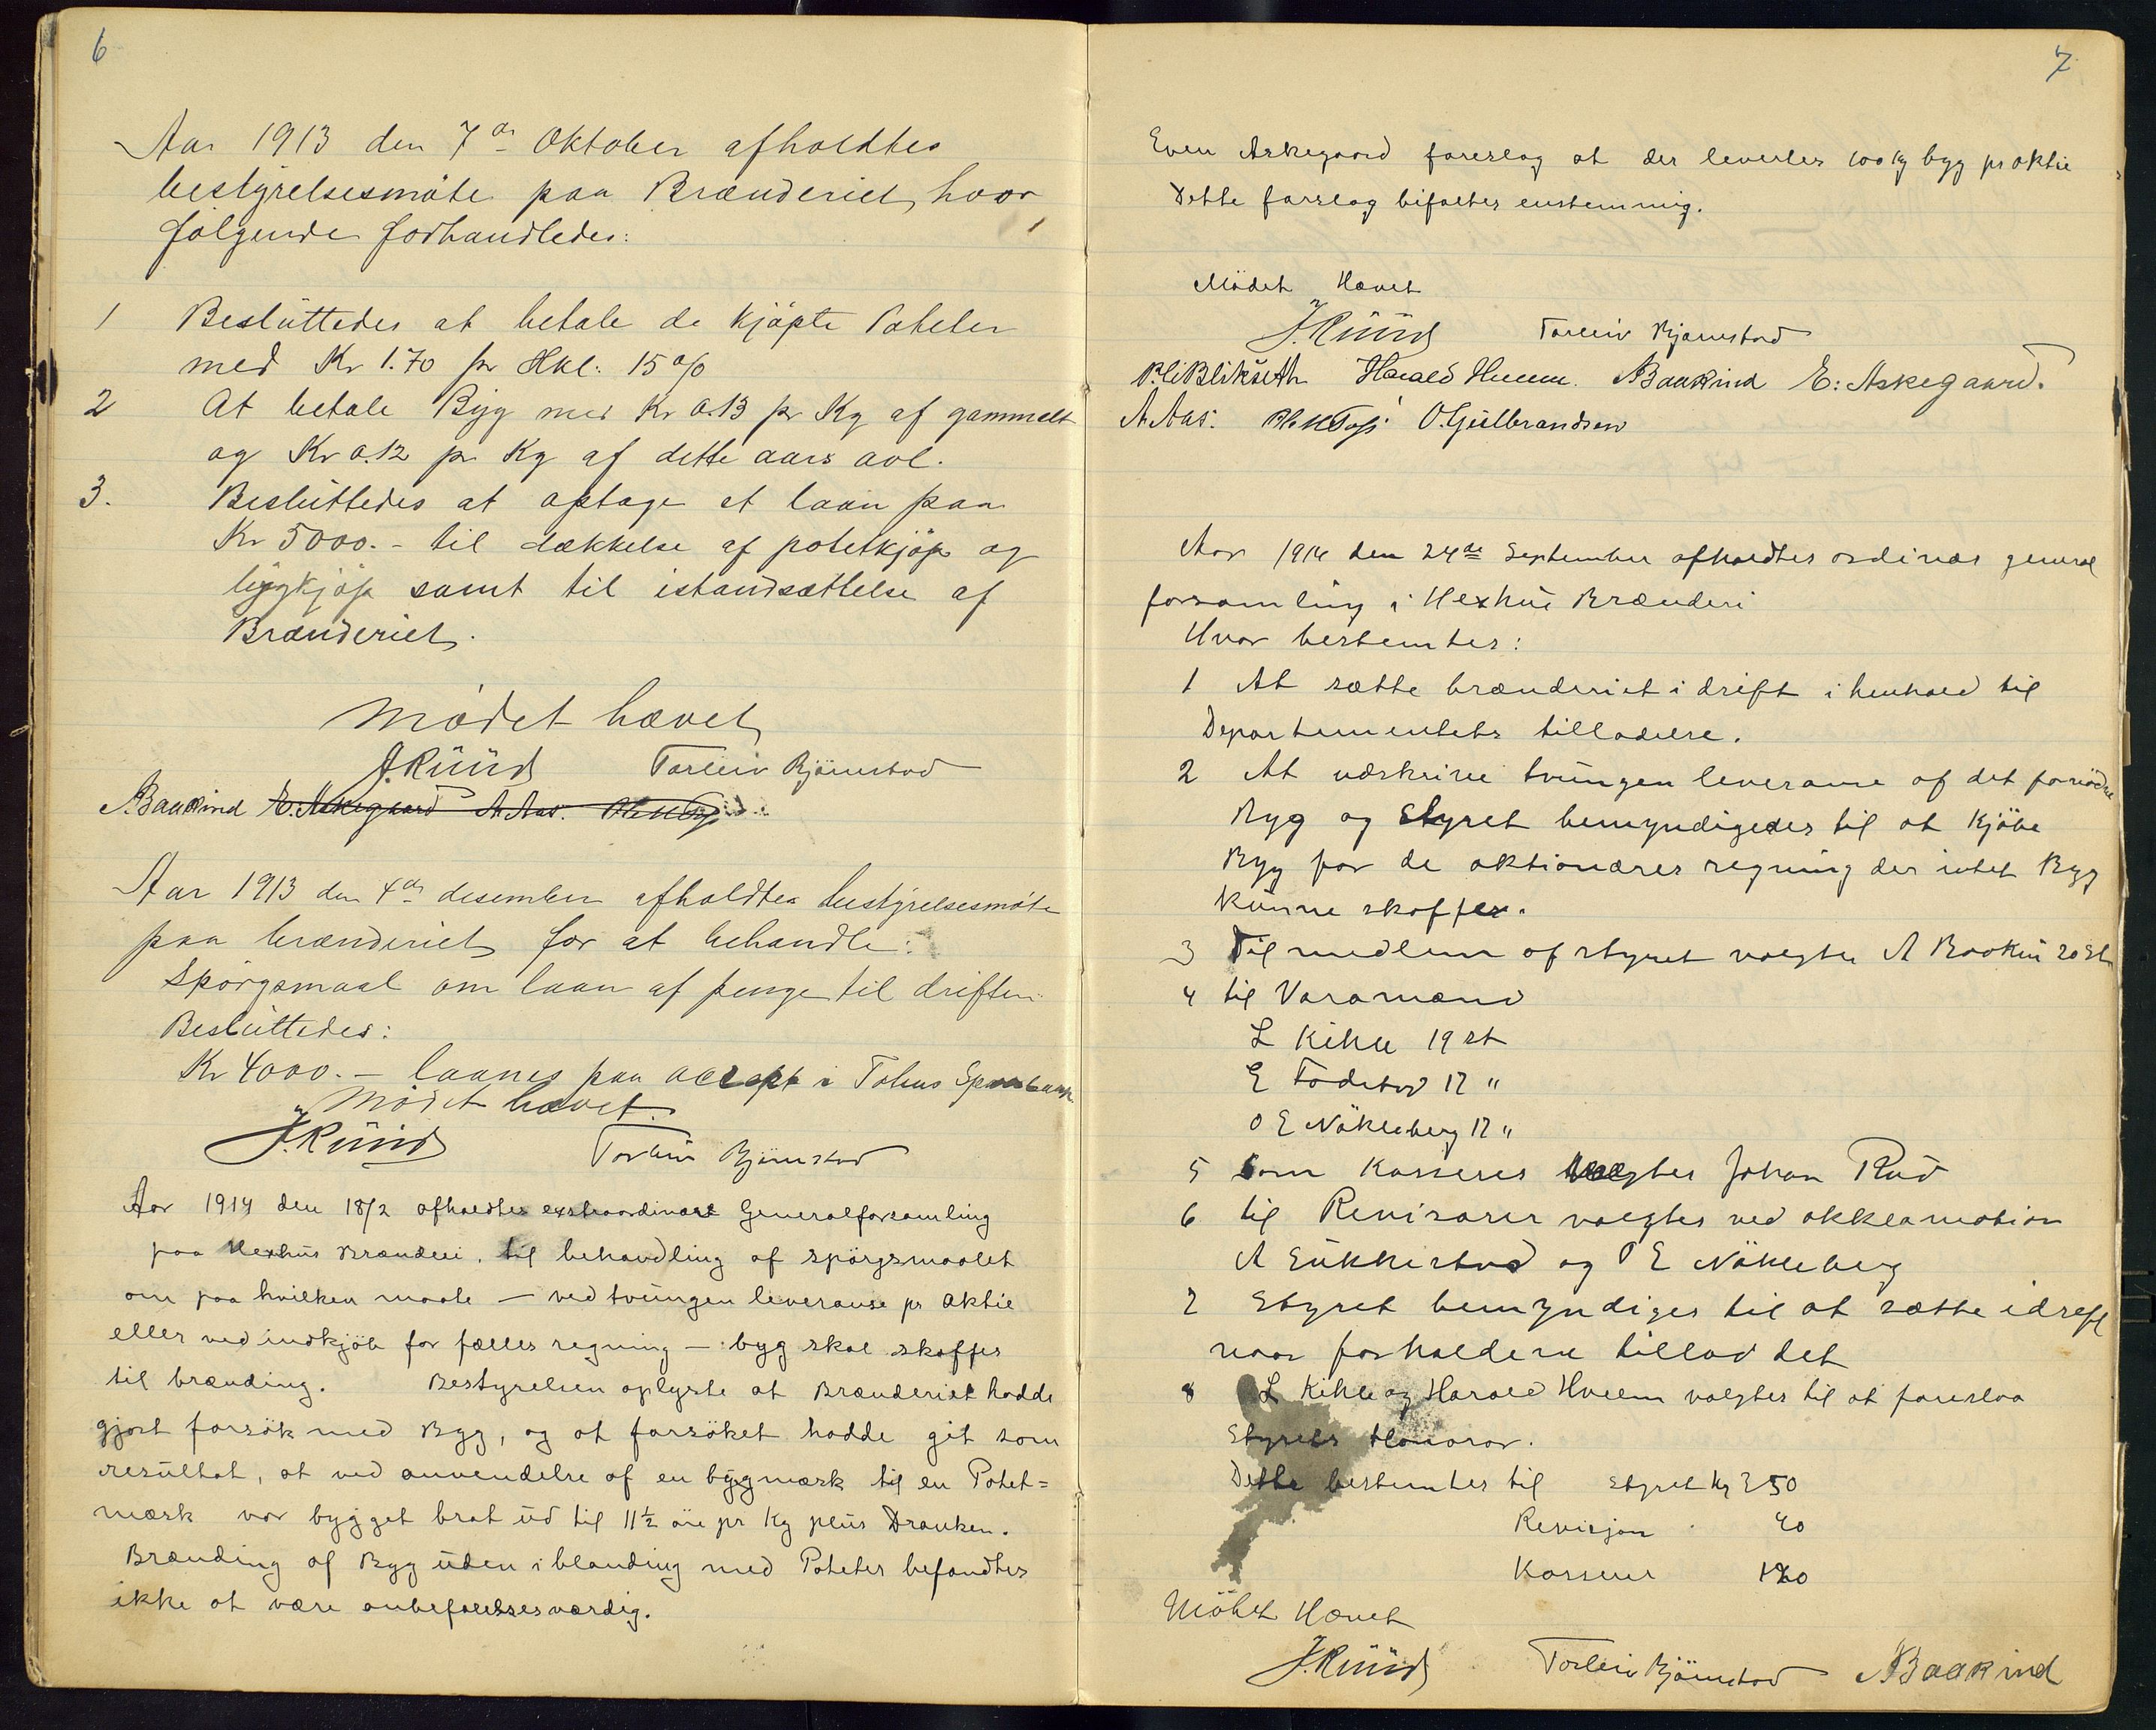 6
Aar 1913 den 7de Oktober afholdtes
bestyrelsesmöte paa Brænderiet, hvor
fölgende forhandledes:
1 Besluttedes at betale de kjöpte Poteter
med Kr 1.70 pr Hkl: 15%
2 At betale Byg med Kr 0.13 pr Kg af gammelt
og Kr 0.12 pr Kg af dette aars avl.
3. Besluttedes at optage et laan paa
Kr 5000.- til dækkelse af potetkjöp og
bygkjöp samt til istandsættelse af
Brænderiet.
Mödet hævet
J. Ruud Torleiv Bjørnstad
A Baakind E. Askegaard A. Aas.
Aar 1913 den 4de desember afholdtes bestyrelsesmöte
paa brænderiet for at behandle:
Spörgsmaal om laan af penge til driften
Besluttedes:
Kr 4000.- laanes paa accept i Sparebank
Mödet hævet.
J. Ruud Torleiv Bjørnstad
Aar 1914 den 18/2 afholdtes extraordinært Generalforsamling
paa Hexhus Brænderi, til behandling af spörgsmaalet
om paa hvilken maate - ved tvungen leveranse pr aktie
eller ved indkjöb for fælles regning - byg skal skaffes
til brænding. Bestyrelsen oplyste at Brænderiet hadde
gjort forsök med Byg, og at forsöket hadde git som
resultat, at ved anvendelse af en bygmæsk til en Potet=
mæsk var bygget brat ud til 11½ öre pr Kg plus Dranken.
Brænding af Byg uden iblanding med Poteter befandtes
ikke at være anbefalelsesværdig.
7
Even Askegaard foreslog at der levertes 100 kg byg pr aktie
Dette forslag bifaltes enstemmig.
Mödet Hævet
J. Ruud Torleiv Bjørnstad
Blikseth Harald Hveem. A Baakind E. Askegaard.
A. Aas. O. Gulbrandsen
Aar 1914 den 24de September afholdtes ordinær general
forsamling i Hexhus Brænderi
Hvor bestemtes:
1 At sætte brænderiet i drift i henhold til
Departementets tilladelse.
2 At udskrive tvungen leveranse af det fornödne
Byg og Styret bemyndigedes til at kjöbe
Byg for de aktionærers regning der intet Byg
kunne skaffer.
3 Til medlem af styret valgtes A Baakin 20 St
4 til Varamænd
L Kihle 19 st
E 17 "
O E Nökleberg 17 "
5 Som Kasserer valgtes Johan Rud
6 til Revisorer valgtes ved akklamation
A Sukkestad og O E Nökleberg
7 Styret bemyndiges til at sætte idrift
naar forholdene tillod det
8 L Kihle og Harald Hveem valgtes til at foreslaa
Styrets Honorar.
Dette bestemtes til styret kr 350
Revisjon 40
Kasserer
Mödet Hævet
J. Ruud Torleiv Bjørnstad A Baakind